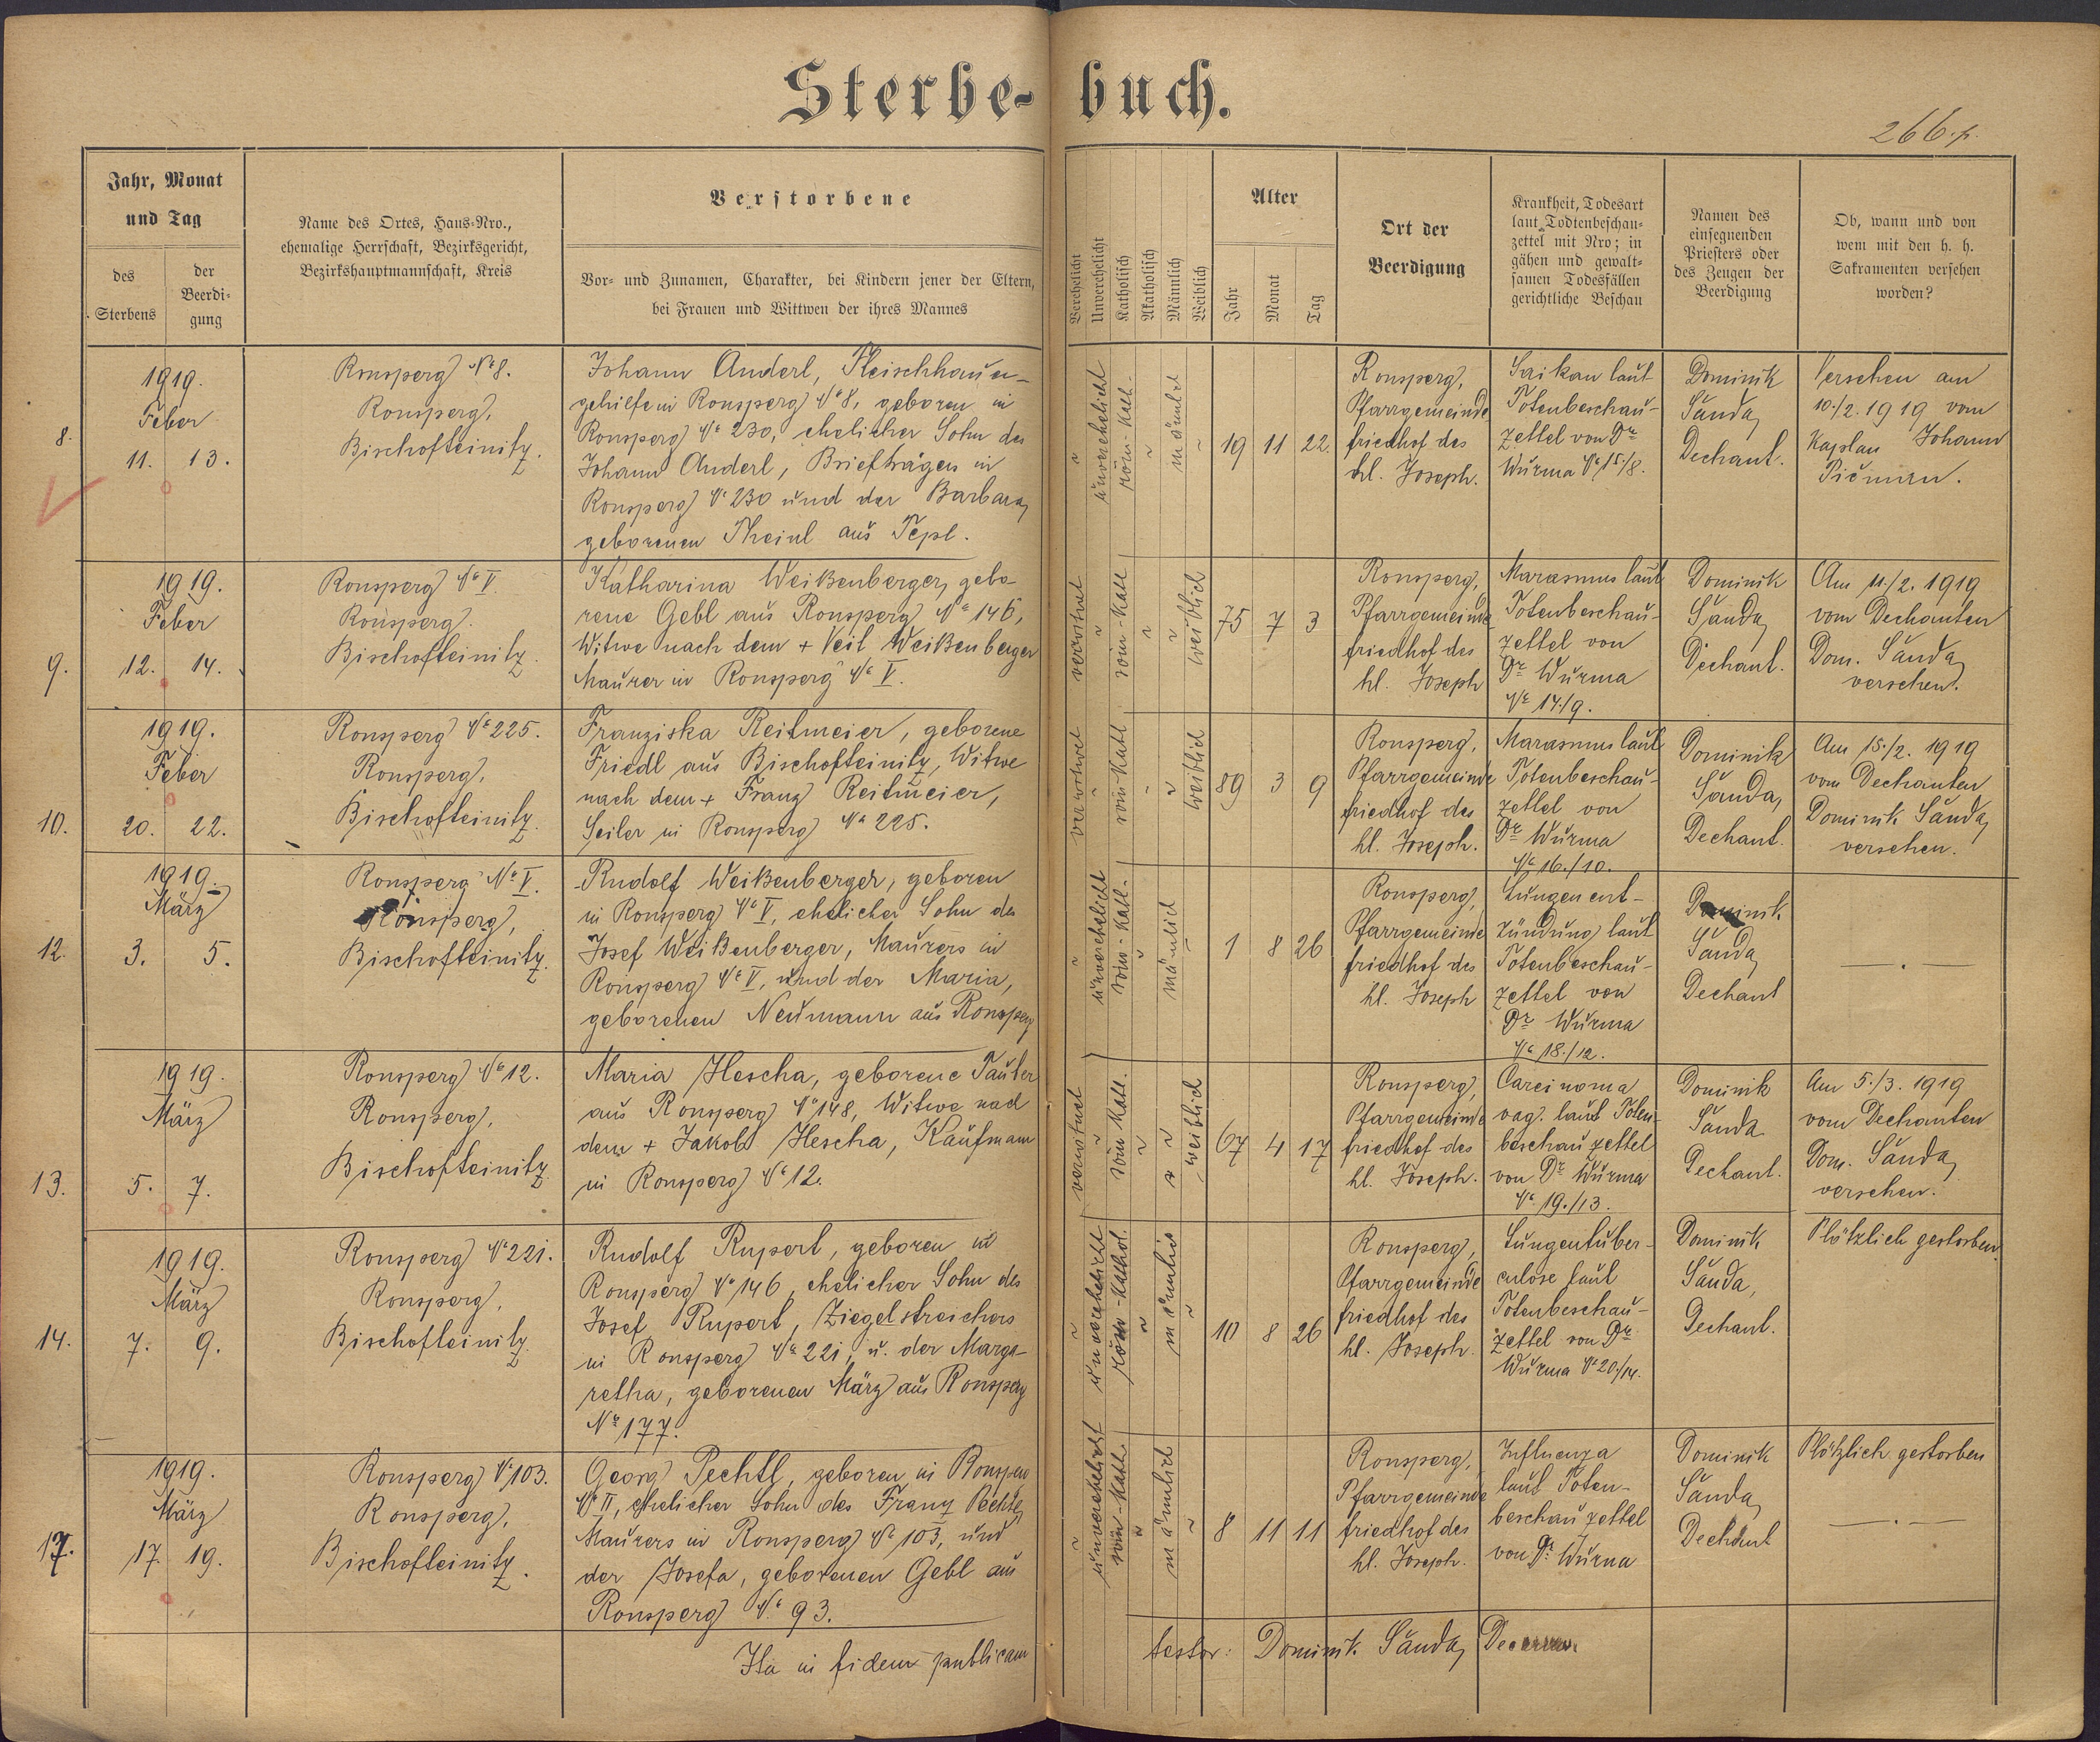 Sterbe-buch.
266.p.
Jahr, Monat
und Tag
des
Sterbens
der
Beerdi-
gung
Name des Ortes, Haus-Nro.,
ehemalige Herrschaft, Bezirksgericht,
Bezirkshauptmannschaft, Kreis
Verstorbene
Vor- und Zunamen, Charakter, bei Kindern jener der Eltern,
bei Frauen und Wittwen der ihres Mannes
Verehelicht
Unverehelicht
Katholisch
Akatholisch
Männlich
Weiblich
Alter
Jahr
Monat
Tag
Ort der
Beerdigung
Krankheit, Todesart
laut Todtenbeschau-
zettel mit Nro; in
gähen und gewalt-
samen Todesfällen
gerichtliche Beschau
Namen des
einsegnenden
Priesters oder
des Zeugen der
Beerdigung
Ob, wann und von
wem mit den h. h.
Sakramenten versehen
worden?
8.
1919.
Feber
11. 13.
Ronsperg No 8.
Ronsperg,
Bischofteinitz.
Johann Anderl, Fleischhauer-
gehilfe in Ronsperg No 8, geboren in
Ronsperg No 230, ehelicher Sohn des
Johann Anderl, Briefträgers in
Ronsperg No 230 und der Barbara,
geborenen Theinl aus Tepl.
unverehelicht
röm-kath.
männlich
19 11 22
Ronsperg,
Pfarrgemeinde
friedhof des
hl. Joseph.
laut
Totenbeschau-
zettel von Dr
Wurma No 15/8.
Dominik
Šanda,
Dechant.
Versehen am
10./2. 1919 vom
Kaplan Johann
9.
1919.
Feber
12. 14.
Ronsperg No V.
Ronsperg.
Bischofteinitz.
Katharina Weißenberger, gebo-
rene Gebl aus Ronsperg No 146,
Witwe nach dem + Veit Weißenberger
Maurer in Ronsperg No V.
verwitwet
röm-kath
weiblich
75 7 3
Ronsperg,
Pfarrgemeinde
friedhof des
hl. Joseph
Marasmus laut
Totenbeschau-
zettel von
Dr Wurma
No 17./9.
Dominik
Šanda,
Dechant.
Am 11./2. 1919
vom Dechanten
Dom. Šanda,
versehen.
10.
1919.
Feber
20. 22.
Ronsperg No 225.
Ronsperg,
Bischofteinitz.
Franziska Reitmeier, geborene
Friedl aus Bischofteinitz, Witwe
nach dem + Franz Reitmeier,
Seiler in Ronsperg No 225.
verwitwet
röm-kath
weiblich
89 3 9
Ronsperg,
Pfarrgemeinde
friedhof des
hl. Joseph.
Marasmus laut
Totenbeschau-
zettel von
Dr Wurma
No 16./10.
Dominik
Šanda,
Dechant.
Am 15./2. 1919
vom Dechanten
Dominik Šanda,
versehen.
12.
1919.
März
3. 5.
Ronsperg No V.
Ronsperg,
Bischofteinitz.
Rudolf Weißenberger, geboren
in Ronsperg No V, ehelicher Sohn des
Josef Weißenberger, Maurers in
Ronsperg No V, und der Maria,
geborenen Neumann aus Ronsperg
unverehelicht
röm-kath.
männlich
1 8 26
Ronsperg,
Pfarrgemeinde
friedhof des
hl. Joseph
Lungenent-
zündung laut
Totenbeschau-
zettel von
Dr Wurma
No 18./12.
Dominik
Šanda,
Dechant
13.
1919.
März
5. 7.
Ronsperg No 12.
Ronsperg,
Bischofteinitz
Maria Hescha, geborene Tauber
aus Ronsperg No 148, Witwe nach
dem + Jakob Hescha, Kaufmann
in Ronsperg No 12.
verwitwet
röm kath.
weiblich
67 4 17
Ronsperg,
Pfarrgemeinde
friedhof des
hl. Joseph.
Carcinoma
vag. laut Toten-
beschauzettel
von Dr Wurma
No 19./13.
Dominik
Šanda
Dechant.
Am 5./3. 1919
vom Dechanten
Dom. Šanda,
versehen.
14.
1919.
März
7. 9.
Ronsperg No 221.
Ronsperg,
Bischofteinitz.
Rudolf Rupert, geboren in
Ronsperg No 146, ehelicher Sohn des
Josef Rupert, Ziegelstreichers
in Ronsperg No 221, u. der Marga-
retha, geborenen März aus Ronsperg
No 177.
unverehelicht
röm-kathol.
männlich
10 8 26
Ronsperg,
Pfarrgemeinde
friedhof des
hl. Joseph.
Lungentuber-
culose laut
Totenbeschau-
zettel von Dr
Wurma No 20./14.
Dominik
Šanda,
Dechant.
Plötzlich gestorben
17.
1919.
März
17. 19.
Ronsperg No 103.
Ronsperg,
Bischofteinitz.
Georg Pechtl, geboren in Ronsperg
No II, ehelicher Sohn des Franz Pechtl,
Maurers in Ronsperg No 103, und
der Josefa, geborenen Gebl aus
Ronsperg No 93.
unverehelicht
röm-kath.
männlich
8 11 11
Ronsperg,
Pfarrgemeinde
friedhof des
hl. Joseph.
Influenza
laut Toten-
beschauzettel
von Dr. Wurma
Dominik
Šanda,
Dechant
Plötzlich gestorben
Ita in fidem publicam
testor: Dominik Šanda,